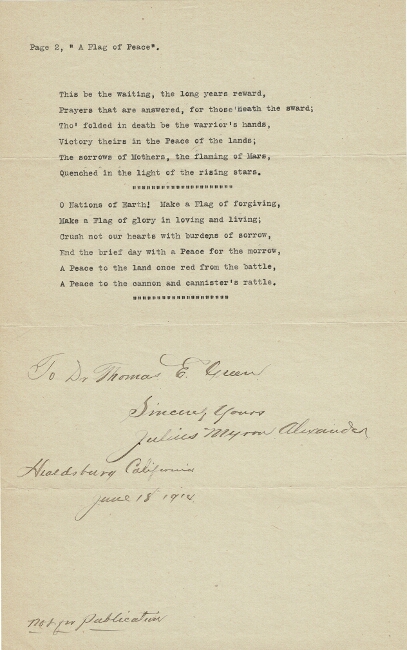 Page 2, " A Flag of Peace".
This be the waiting, the long years reward,
Prayers that are answered, for those'Neath the sward;
Tho' folded in death be the warrior's hands,
Victory theirs in the Peace of the lands;
The sorrows of Mothers, the flaming of Mars,
Quenched in the light of the rising stars.
"""""""""""""""""""""
O Nations of Earth! Make a Flag of forgiving,
Make a Flag of glory in loving and living;
Crush not our hearts with burdens of sorrow,
End the brief day with a Peace for the morrow,
A Peace to the land once red from the battle,
A Peace to the cannon and cannister's rattle.
""""""""""""""""""""
To Dr Thomas E. Green
Sincerely Yours
Julius Myron Alexander
Healdsburg California
June 18 1914
not for publication